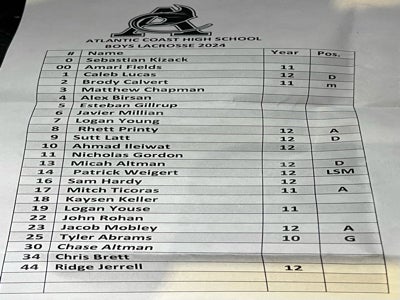 ATLANTIC COAST HIGH SCHOOL
BOYS LACROSSE 2024
# Name Year Pos.
0 Sebastian Kizack
00 Amari Fields 11
1 Caleb Lucas 12 D
2 Brody Calvert 11 m
3 Matthew Chapman
4 Alex Birsan
5 Esteban Gillrup
6 Javier Millian
7 Logan Young
8 Rhett Printy 12 A
9 Sutt Latt 12 D
10 Ahmad Ileiwat 12
11 Nicholas Gordon
13 Micah Altman 12 D
14 Patrick Weigert 12 LSM
16 Sam Hardy 12
17 Mitch Ticoras 11 A
18 Kaysen Keller
19 Logan Youse 11
22 John Rohan
23 Jacob Mobley 12 A
25 Tyler Abrams 10 G
30 Chase Altman
34 Chris Brett
44 Ridge Jerrell 12